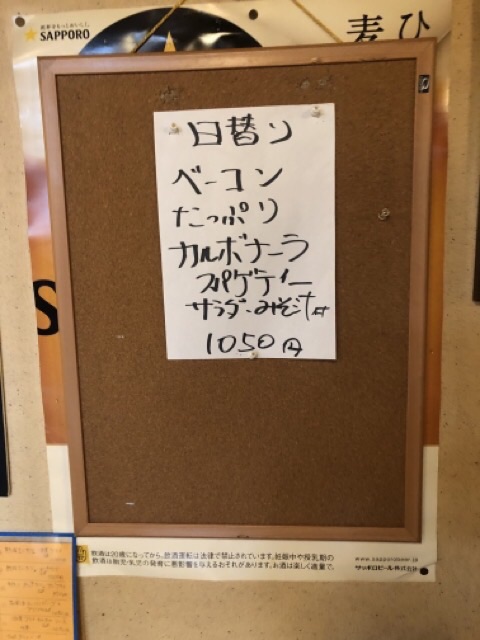 SAPPORO
麦
ひ
日替り
ベーコン
たっぷり
カルボナーラ
スパゲティー
サラダ・みそ汁付
1050円
S
飲酒は20歳になってから。飲酒運転は法律で禁止されています。妊娠中や授乳期の
飲酒は胎児・乳児の発育に悪影響を与えるおそれがあります。お酒は楽しく適量で。
サッポロビール株式会社